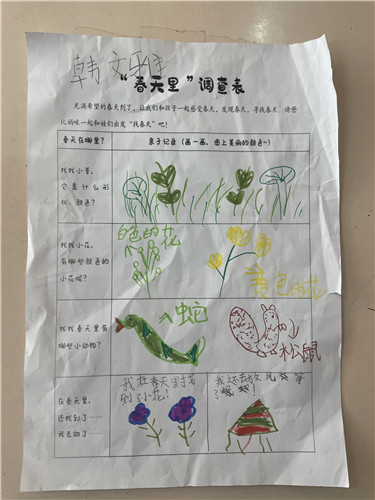 韩文
“春天里”调查表
充满希望的春天到了，让我们和孩子一起感受春天、发现春天、寻找春天，请爸
比妈咪一起和娃们出发“找春天”吧！
春天在哪里？
亲子记录（画一画，图上美丽的颜色~）
找找小草，
它是什么形
状、颜色？
找找小花，
有哪些颜色的
小花呢？
白色的花
黄色的花
找找春天里有
哪些小动物？
蛇
松鼠
在春天里，
还找到了……
我去做了……
我在春天里找
到了小花！
我还去放风筝
了